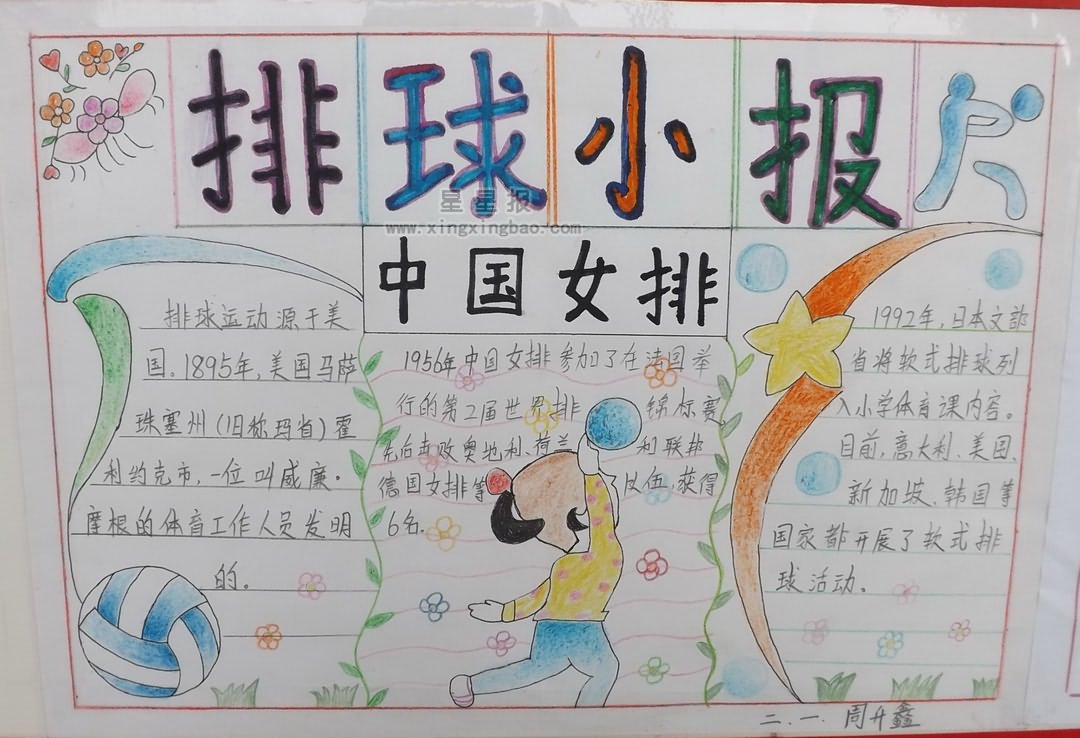 排球小报
星星报
www.xingxingbao.com
中国女排
排球运动源于美
国。1895年,美国马萨
珠塞州(旧称玛省)霍
利约克市,一位叫威廉·
摩根的体育工作人员发明
的。
1956年中国女排参加了在法国举
行的第二届世界排 锦标赛
先后击败奥地利、荷兰 利联邦
德国女排等 队伍,获得
6名.
1992年,日本文部
省将软式排球列
入小学体育课内容。
目前,意大利、美国、
新加坡、韩国等
国家都开展了软式排
球活动。
二.一.周升鑫